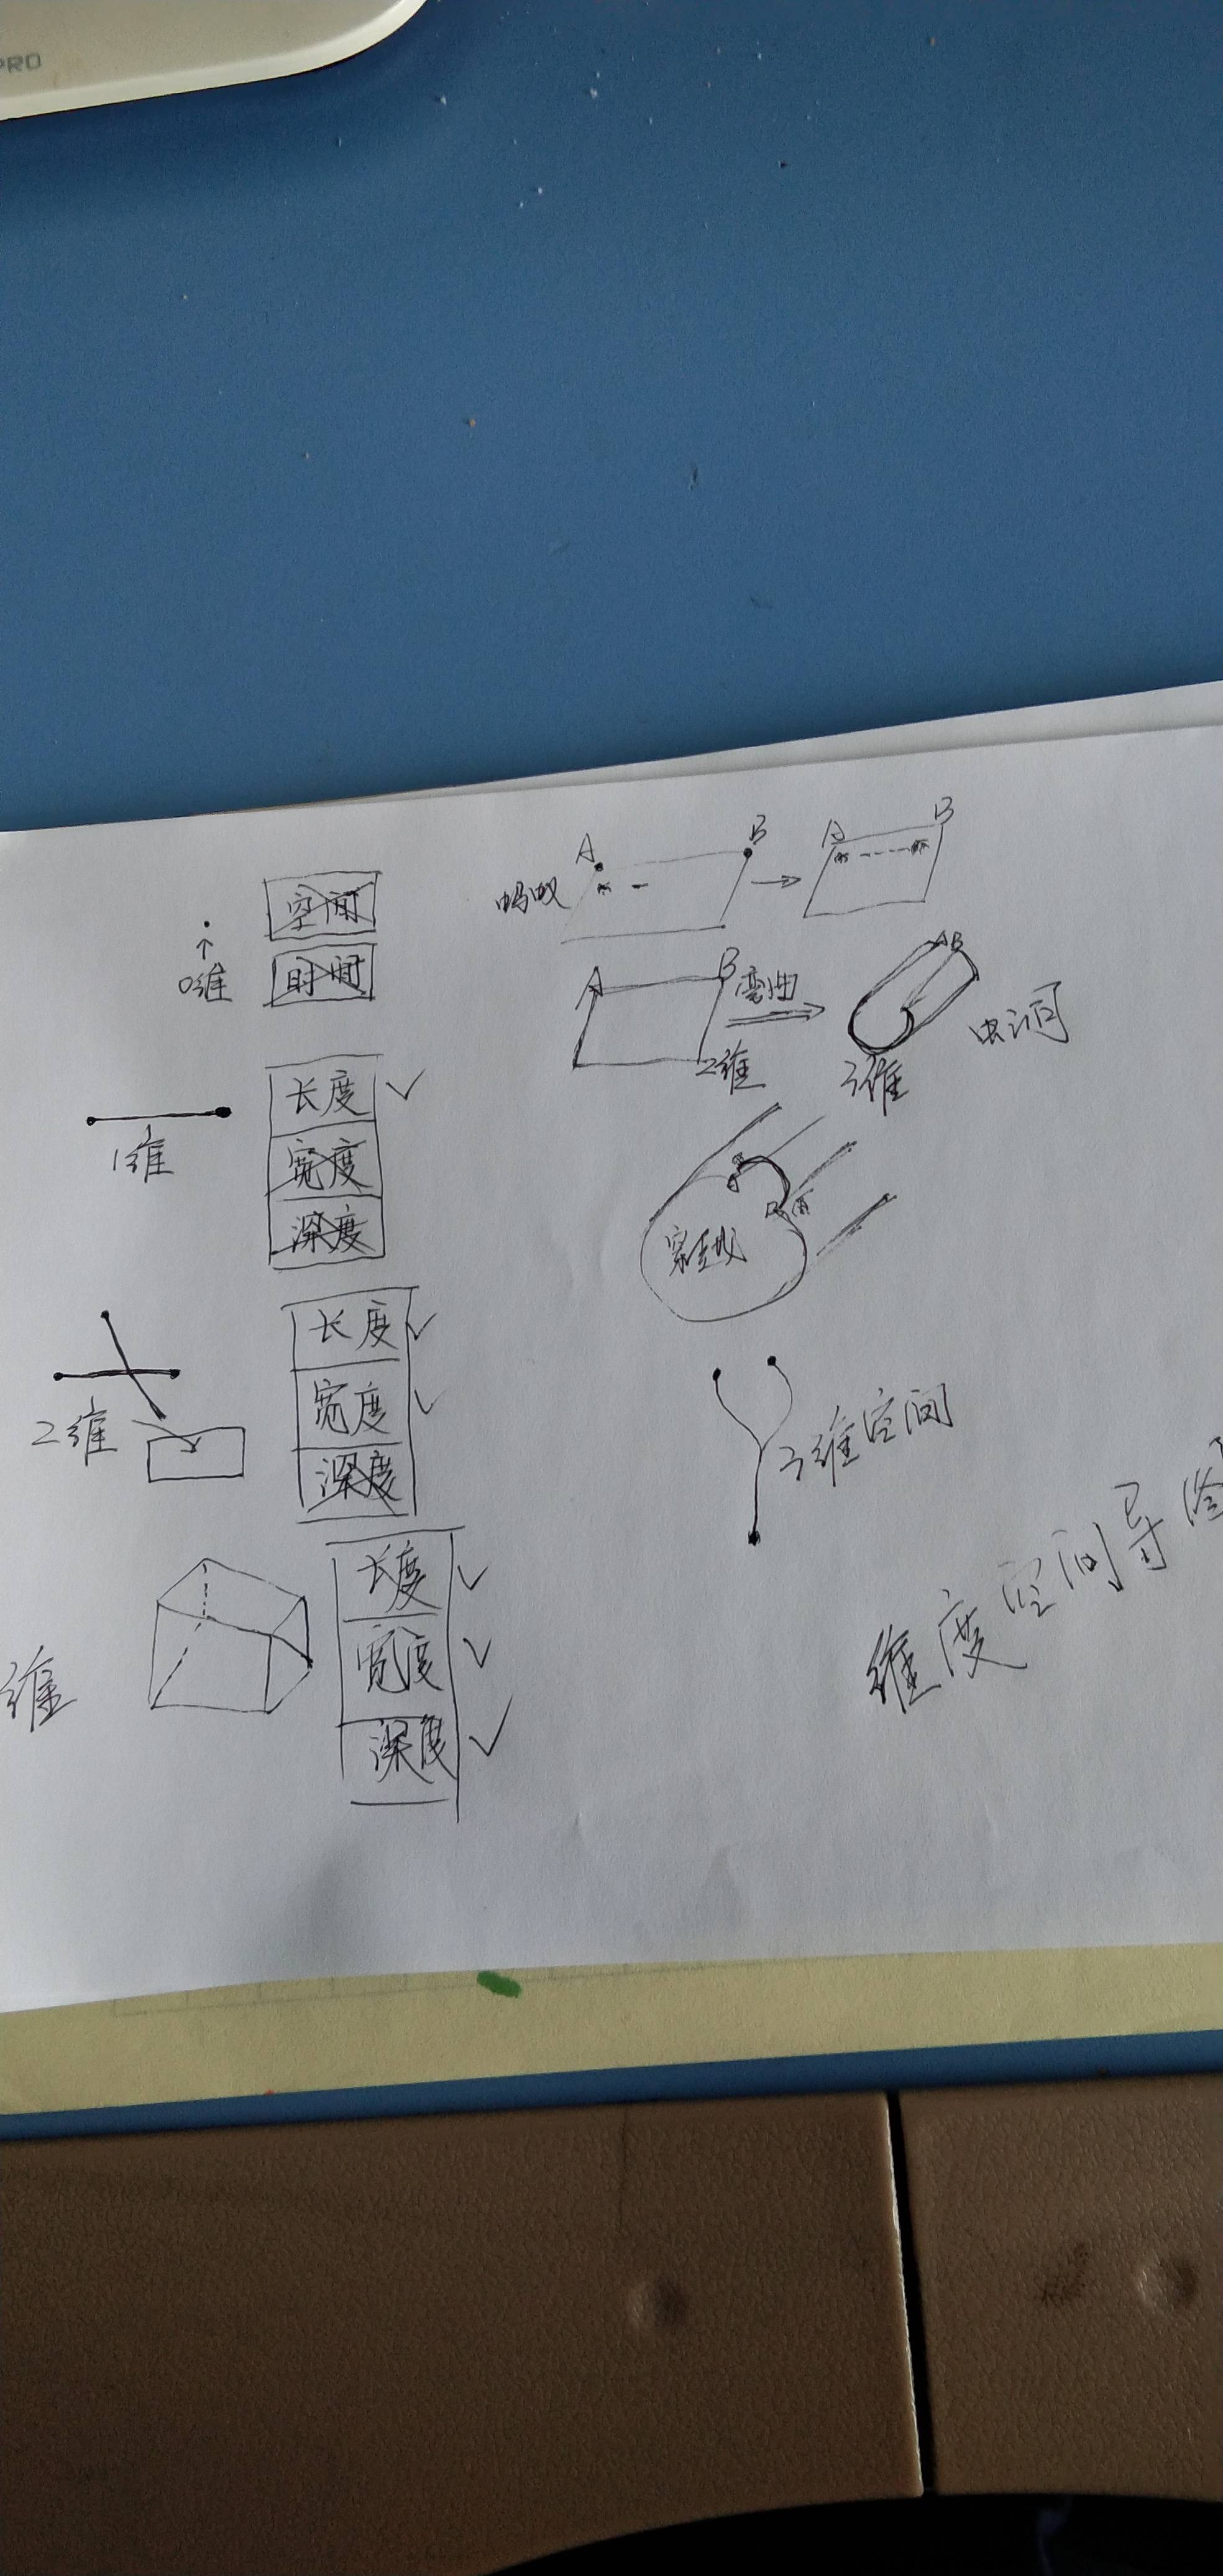 PRO
空间
时间
0维
长度
宽度
深度
1维
长度
宽度
深度
2维
长度
宽度
深度
维
A
B
蚂蚁
A
B
A
B
弯曲
2维
AB
3维
虫洞
穿越
3维空间
维度空间导图